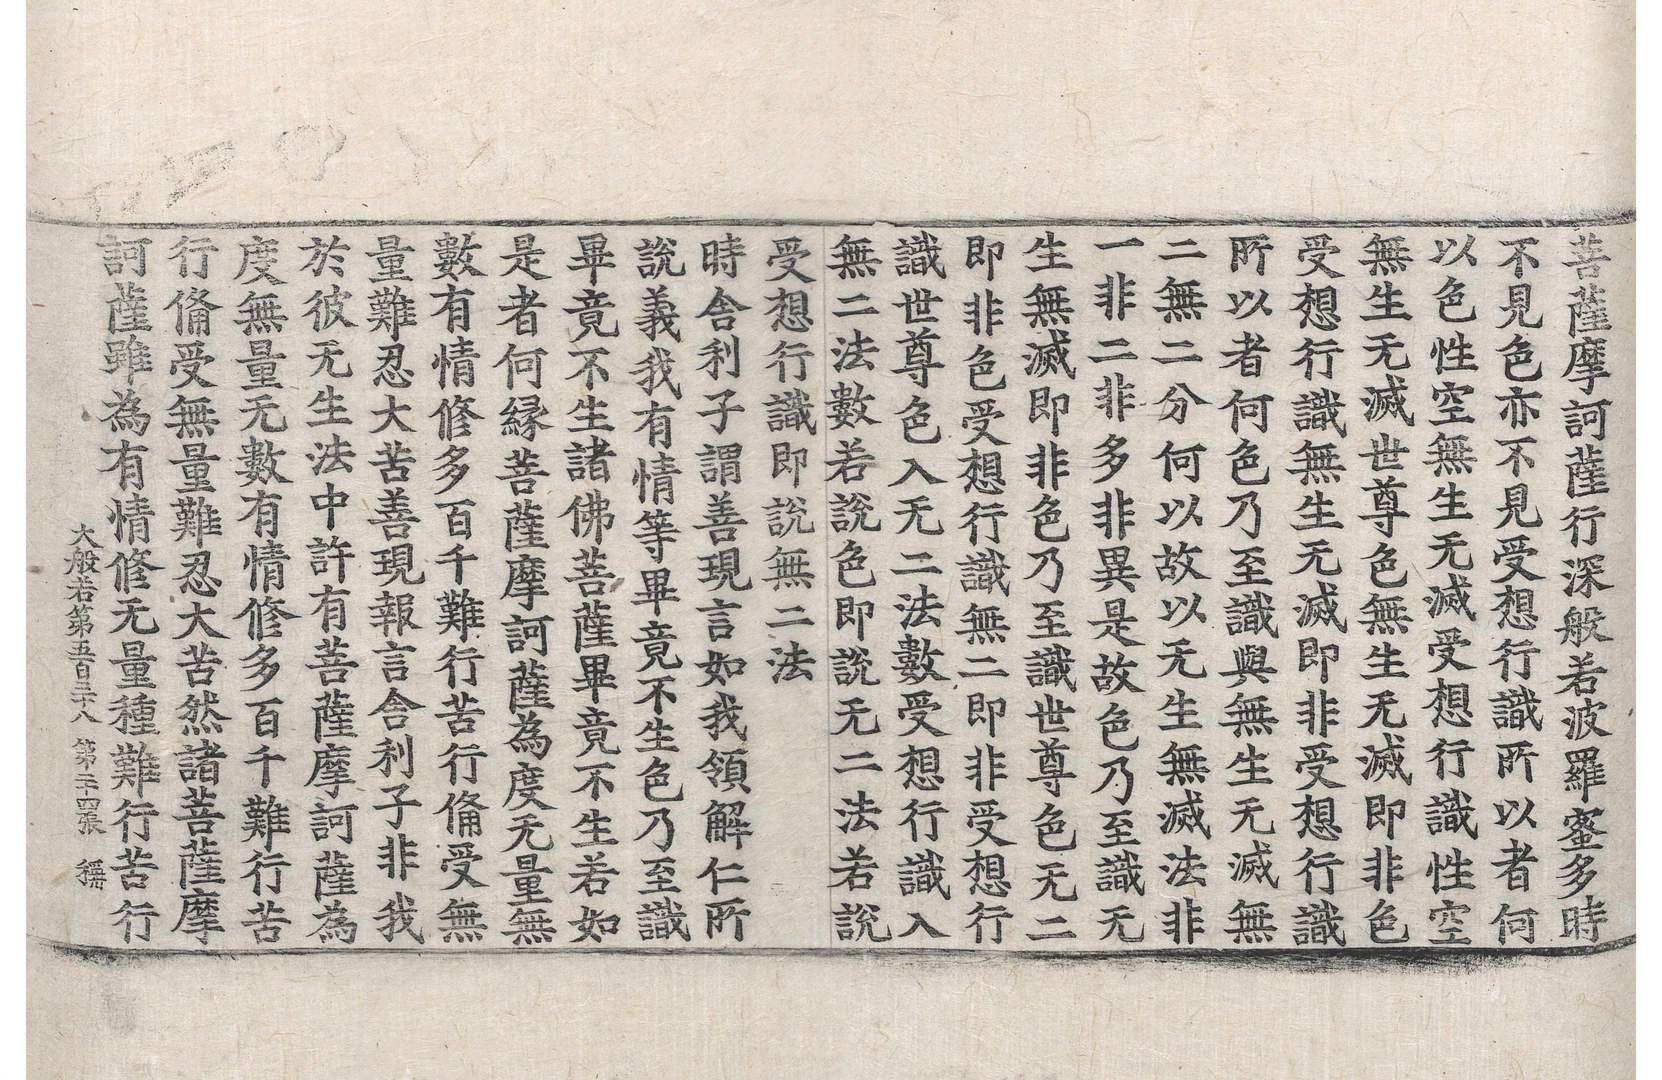 菩薩摩訶薩行深般若波羅蜜多時
不見色亦不見受想行識所以者何
以色性空無生无滅受想行識性空
無生无滅世尊色無生无滅即非色
受想行識無生无滅即非受想行識
所以者何色乃至識與無生无滅無
二無二分何以故以无生無滅法非
一非二非多非異是故色乃至識无
生無滅即非色乃至識世尊色无二
即非色受想行識無二即非受想行
識世尊色入无二法數受想行識入
無二法數若說色即說无二法若說
受想行識即說無二法
時舍利子謂善現言如我領解仁所
說義我有情等畢竟不生色乃至識
畢竟不生諸佛菩薩畢竟不生若如
是者何緣菩薩摩訶薩為度无量無
數有情修多百千難行苦行備受無
量難忍大苦善現報言舍利子非我
於彼无生法中許有菩薩摩訶薩為
度無量无數有情修多百千難行苦
行備受無量難忍大苦然諸菩薩摩
訶薩雖為有情修无量種難行苦行
大般若第五百三十八 第二十四張 稱